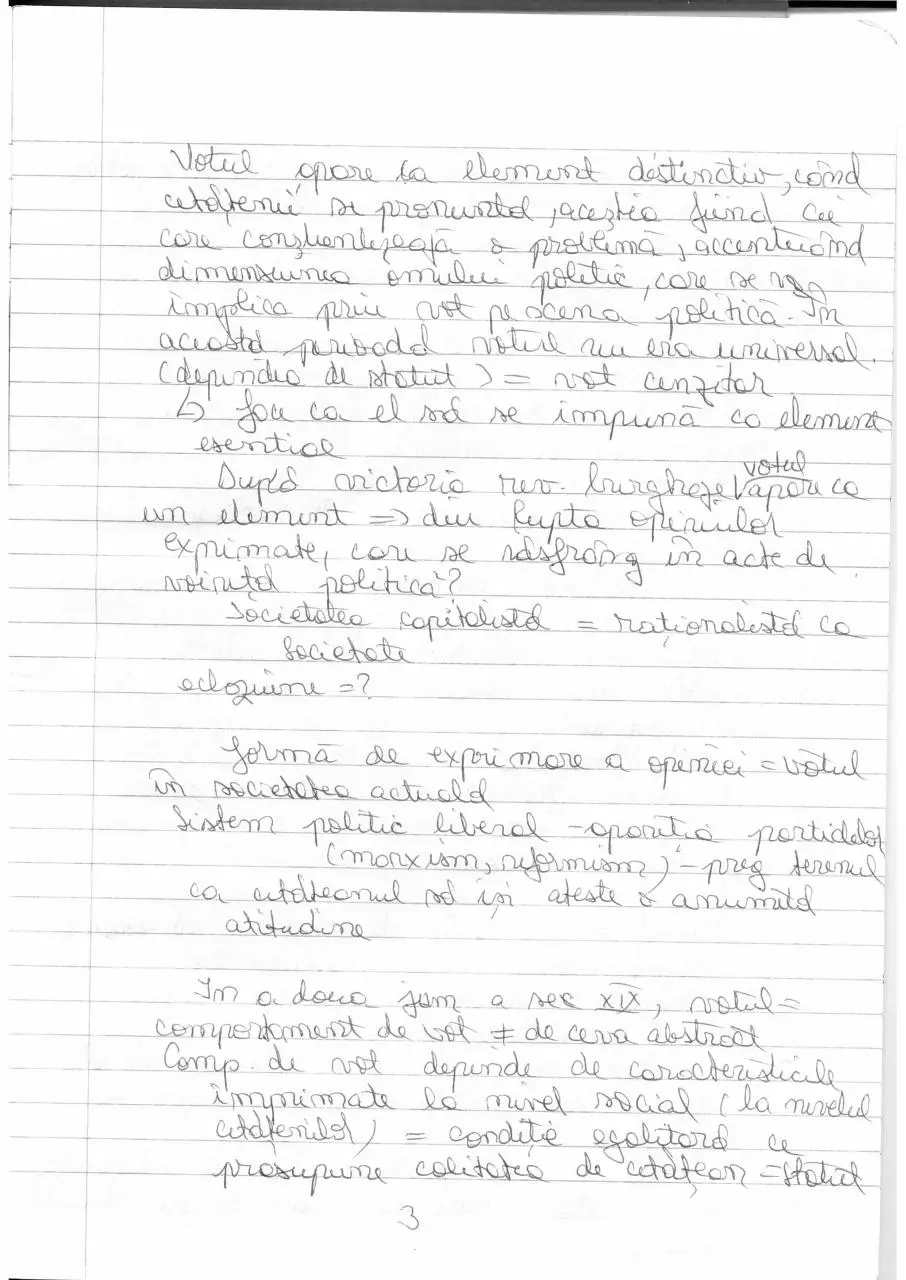 Votul apare ca element distinctiv, când
cetățenii se pronunță, aceștia fiind cei
care conștientizează o problemă, accentuând
dimensiunea omului politic, care se va
implica prin vot pe scena politică. În
această perioadă votul nu era universal.
(depindea de statut) = vot cenzitar
↳ face ca el să se impună ca element
esențial
După victoria rev. burgheze votul apare ca
un element => din lupta opiniilor
exprimate, care se răsfrâng în acte de
voință politică?
Societatea capitalistă = raționalistă ca
societate
ecloziune =?
formă de exprimare a opiniei = votul
în societatea actuală
Sistem politic liberal - apariția partidelor
(marxism, reformism) - preg terenul
ca cetățeanul să își ateste o anumită
atitudine
În a doua jum a sec XIX, votul =
comportament de vot ≠ de ceva abstract
Comp. de vot depinde de caracteristicile
imprimate la nivel social (la nivelul
cetățenilor) = condiție egalitară ce
presupune calitatea de cetățean = statut
3